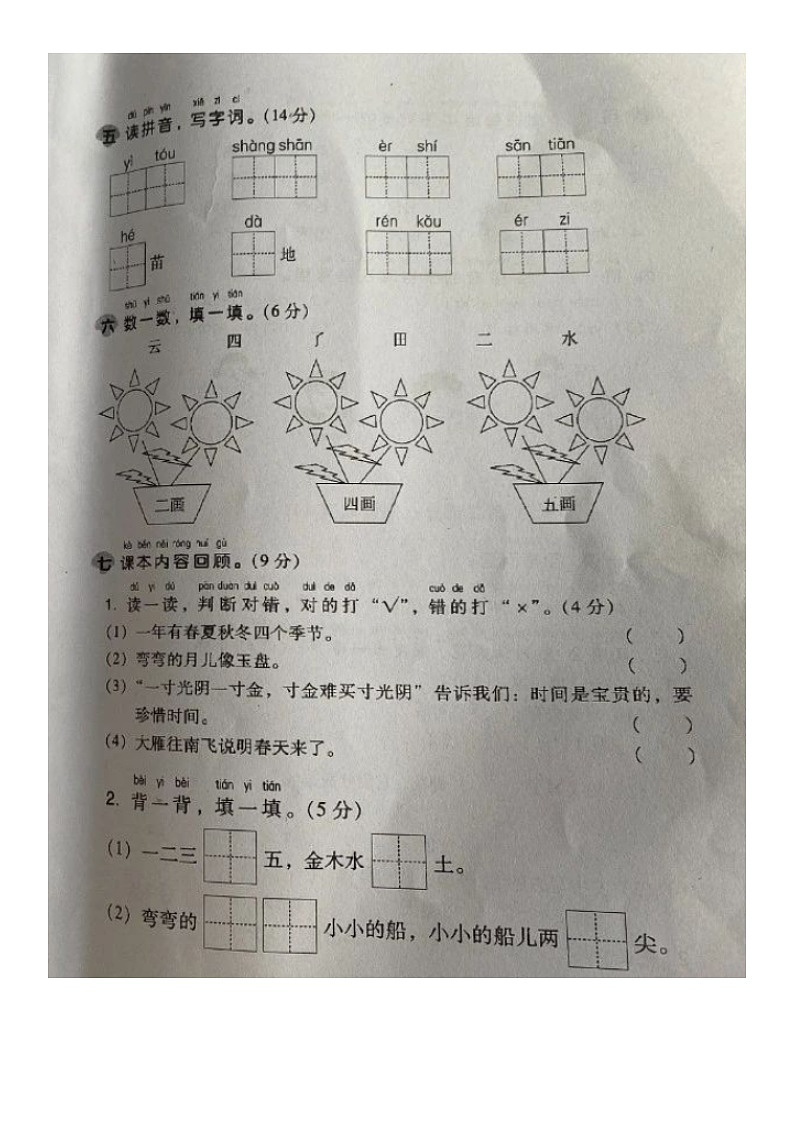 dú pīn yīn xiě zì cí
五 读拼音，写字词。(14分)
yì tóu shàng shān èr shí sān tiān
hé dà rén kǒu ér zi
苗 地
shǔ yi shǔ tián yi tián
六 数一数，填一填。(6分)
云 四 了 田 二 水
二画 四画 五画
kè běn nèi róng huí gù
七 课本内容回顾。(9分)
dú yi dú pàn duàn duì cuò duì de dǎ cuò de dǎ
1. 读一读，判断对错，对的打“√”，错的打“×”。(4分)
(1) 一年有春夏秋冬四个季节。 ( )
(2) 弯弯的月儿像玉盘。 ( )
(3) “一寸光阴一寸金，寸金难买寸光阴”告诉我们：时间是宝贵的，要
珍惜时间。 ( )
(4) 大雁往南飞说明春天来了。 ( )
bèi yi bèi tián yi tián
2. 背一背，填一填。(5分)
(1) 一二三 五，金木水 土。
(2) 弯弯的 小小的船，小小的船儿两 尖。